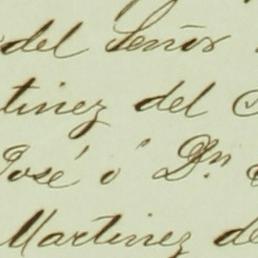 del Señor
tinez del
José ó Dn
Martinez de